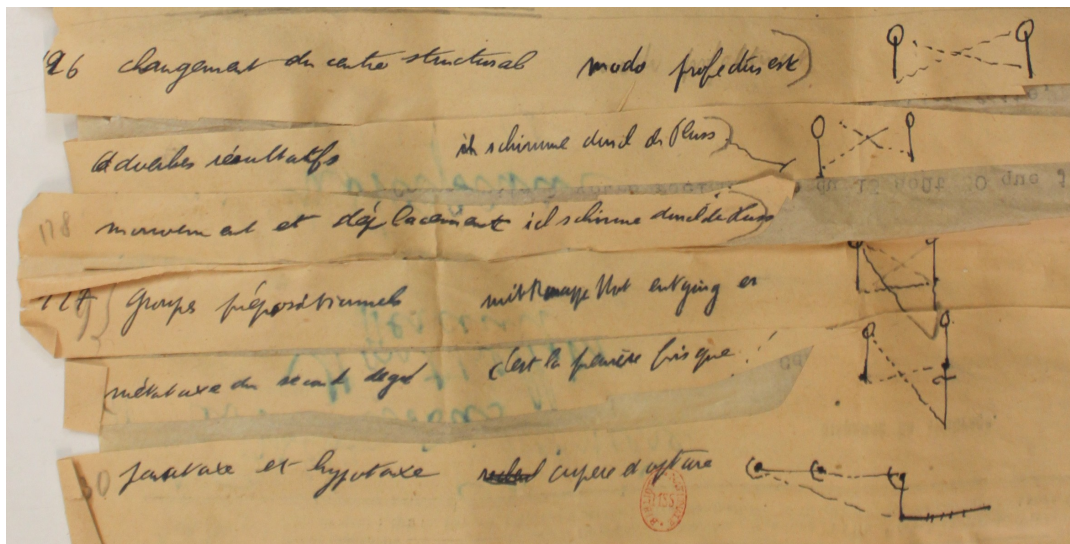 126 changement du centre structural modo profectus est)
adverbes résultatifs ich schwimme durch de Fluss)
128 mouvement et déplacement ich schwimme durch de Fluss)
groupes prépositionnels mit knapper Not entging er
métataxe du second degré c'est la première fois que . !
30 parataxe et hypotaxe cupere d'optare